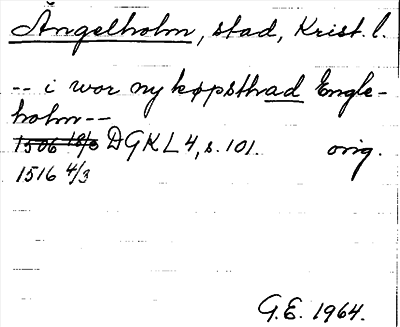 Ängelholm, stad, Krist. l.
-- i wor ny køpsthad Engle-
holm --
1506 18/6 DGKL 4, s. 101. orig.
1516 4/3
G.E. 1964.